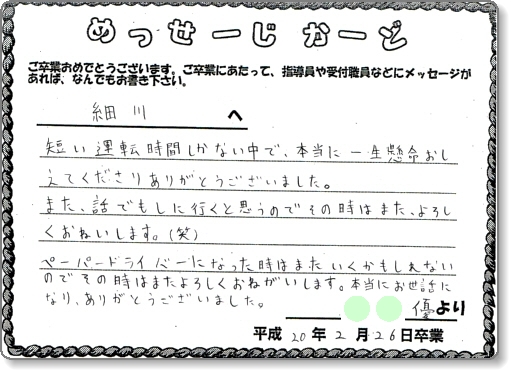 めっせーじかーど
ご卒業おめでとうございます。ご卒業にあたって、指導員や受付職員などにメッセージが
あれば、なんでもお書き下さい。
細川 へ
短い運転時間しかない中で、本当に一生懸命おし
えてくださりありがとうございました。
また、話でもしに行くと思うのでその時はまた、よろし
くおねいします。(笑)
ペーパードライバーになった時はまたいくかもしれない
のでその時はまたよろしくおねがいします。本当にお世話に
なり、ありがとうございました。
優より
平成 20年 2月 26日卒業